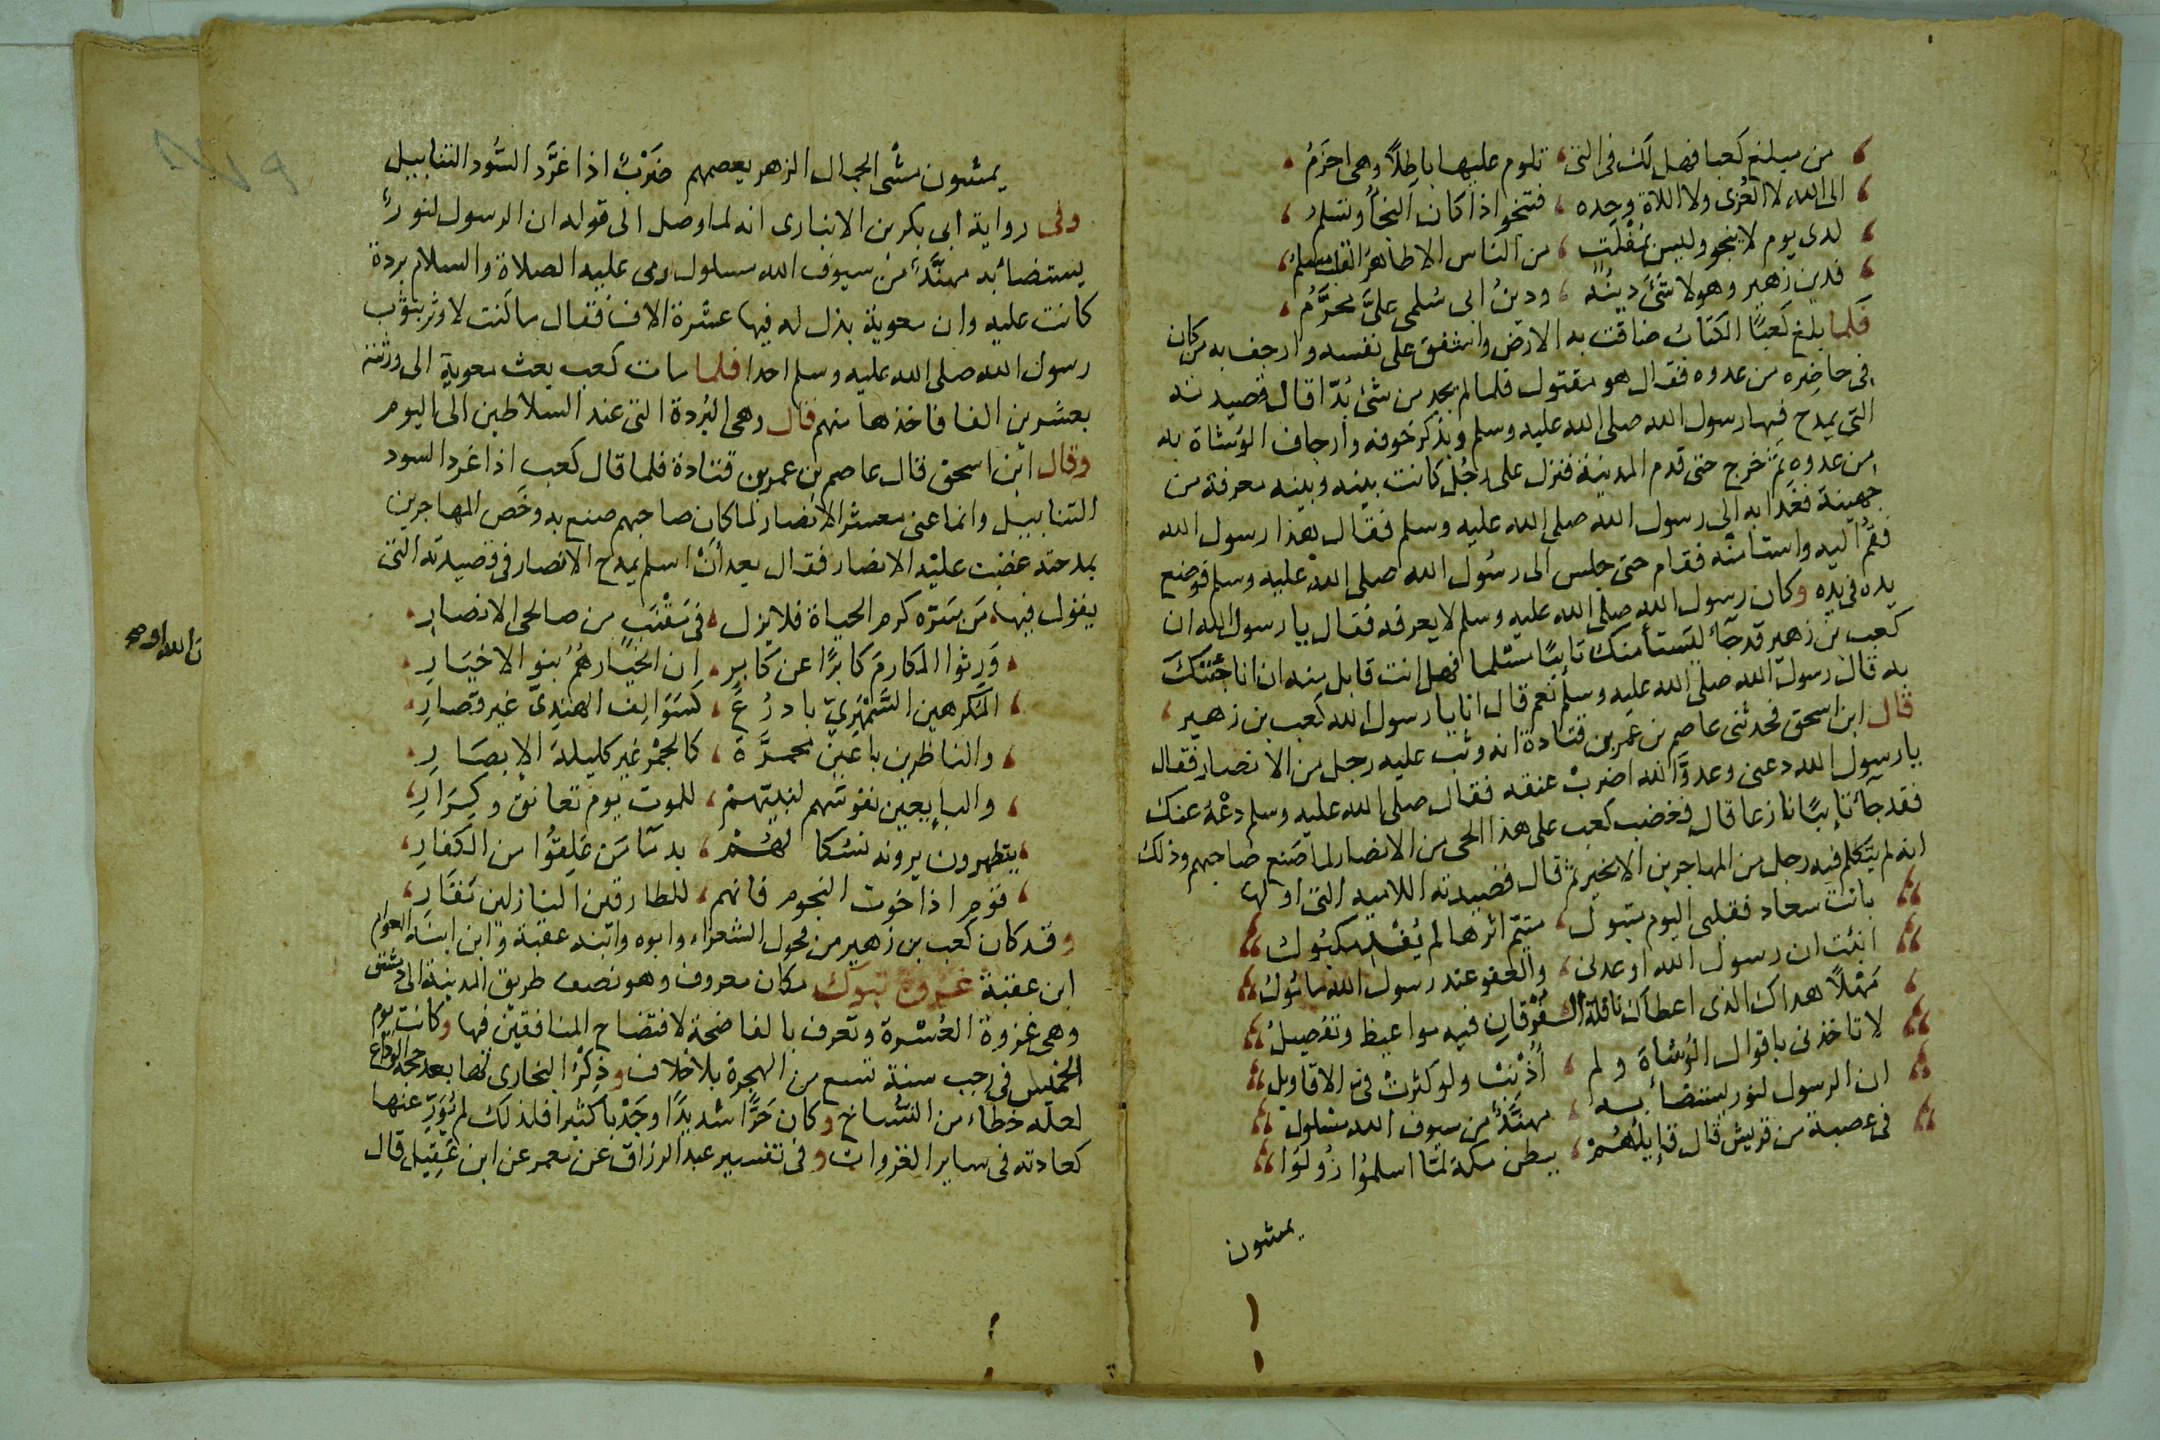 من مبلغ كعبا فهل لك فى التى، تلوم عليها باطلاً وهى احزمُ
الى الله لا العُزى ولا اللاة وحده، فتنجو اذا كان النجآُ وتسلم
لدى يوم لا ينجو وليس بمُفْلَتٍ، من الناس الا طاهر القلب مسلمُ
فدين زهير وهو لا شئَ دينُهُ، ودينُ ابى سُلمى علىَّ محرَّمُ
فلما بلغ كعبًا الكتابُ ضاقت به الارض واشفق على نفسه وارجف به من كان
فى حاضِره من عدوه فقال هو مقتول فلما لم يجد من شئ بُدّا قال قصيدته
التى يمدح فيها رسول الله صلى الله عليه وسلم ويذكر خوفه وارجاف الوُشاة به
من عدوه ثم خرج حتى قدم المدينة فنزل على رجُل كانت بينه وبينه معرفة من
جهينة فغدا به الى رسول الله صلى الله عليه وسلم فقال هذا رسول الله
فقم اليه واستامنه فقام حتى جلس الى رسول الله صلى الله عليه وسلم فوضع
يده فى يده وكان رسول الله صلى الله عليه وسلم لا يعرفه فقال يا رسول الله ان
كعب بن زهير قد جآء ليستأمنك تايبًا مسلما فهل انت قابل منه ان انا جئتك
به قال رسول الله صلى الله عليه وسلم نعم قال انا يا رسول الله كعب بن زهير
قال ابن اسحق فحدثنى عاصم بن عمر بن قتادة انه وثب عليه رجل من الانصار فقال
يا رسول الله دعنى وعدوَّ الله اضربْ عنقه فقال صلى الله عليه وسلم دعْهُ عنك
فقد جآء تايبًا نازعا قال فغضب كعب على هذا الحى من الانصار لما صَنع صاحبهم وذلك
انه لم يتكلم فيه رجل من المهاجرين الا بخير ثم قال قصيدته اللاميه التى اولها
بانت سعاد فقلبى اليوم متبول، متيّم اثرها لم يُفْد مكبُول
انبئت ان رسول الله اوعدنى، والعفو عند رسول الله مامُول
مَهْلاً هداك الذى اعطاك نافلة الفُرقانِ فيه مواعيظ وتفصيلُ
لا تاخذنى باقوال الوُشاة ولم، أُذْنبْ ولو كثرتْ فىّ الاقاويل
ان الرسول لنور يستضآء به، مهنَّدٌ من سيوف الله مسْلول
فى عصبة من قريش قال قايلُهُمْ، ببطن مكة لمّا اسلمُوا زُولُوا
يمشون
يمشون مشْى الجمال الزهر يعصمهم ضَرْبٌ اذا غرَّد السُّود التنابيل
وفى رواية ابى بكر بن الانبارى انه لما وصل الى قوله ان الرسول لنورٌ
يستضآء به مهنَّدٌ من سيوف الله مسلول رمى عليه الصلاة والسلام بردة
كانت عليه وان معوية بذل له فيها عشرة الاف فقال ما كنت لاوثر بثوب
رسول الله صلى الله عليه وسلم احدا فلما مات كعب بعث معوية الى ورثته
بعشرين الفا فاخذها منهم قال وهى البُردة التى عند السلاطين الى اليوم
وقال ابن اسحق قال عاصم بن عمر بن قتادة فلما قال كعب اذا غرد السود
التنابيل وانما عنى معشر الانصار لما كان صاحبهم صنع به وخَص المهاجرين
بمدحته غضبت عليْه الانصار فقال بعد انْ اسلم يمدح الانصار فى قصيدته التى
يقول فيها، مَن سَرّه كرم الحياة فلا يزل، فى مَقْنَبٍ من صالحى الانصارِ
وَرِثوا المكارمَ كابرًا عن كَابِرٍ، ان الخيَار هُمُ بنو الاخيَارِ
المكرهين السَّمْهَرِىّ بادرُعٍ، كسَوَالِف الهندِىّ غير قصارِ
والناظرين باعين محمرَّة، كالجمْر غير كليلة الابصَارِ
والبايعين نفوسَهم لنبيّهمْ، للموت يوم تعانق وكِرَارِ
يتطهرون يرونه نسُكا لهُمْ، بدمآء مَن عَلِقُوا من الكفارِ
قوم اذا خَوت النجوم فانهم، للطارقين النازلين مَقَارِ
وقد كان كعب بن زهير من فحول الشعراء وابوه وابنه عقبة وابن ابنه العوام
ابن عقبة غزوة تبوك مكان معروف وهو نصف طريق المدينة الى دمشق
وهى غزوة العُسْرة وتعرف بالفاضحة لافتضاح المنافقين فيها وكانت يوم
الخميس فى رجب سنة تسع من الهجرة بلا خلاف وذِكْرُ البخارى لها بعد حجة الوداع
لعله خطاء من النُّساخ وكان حَرًّا شديدًا وجَدْبا كثيرا فلذلك لم يُوَرِّ عنها
كعادته فى ساير الغزوات وفى تفسير عبد الرزاق عن معمر عن ابن عَقِيل قال